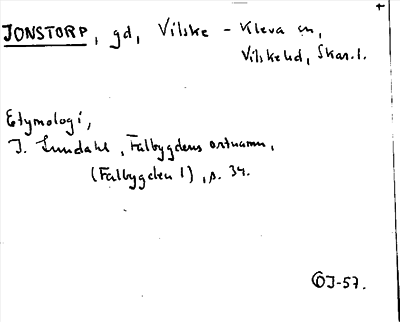 JONSTORP, gd, Vilske - Kleva sn,
Vilske hd, Skar. l.
Etymologi,
I. Lundahl, Falbygdens ortnamn,
(Falbygden 1), s. 34.
OJ-57.